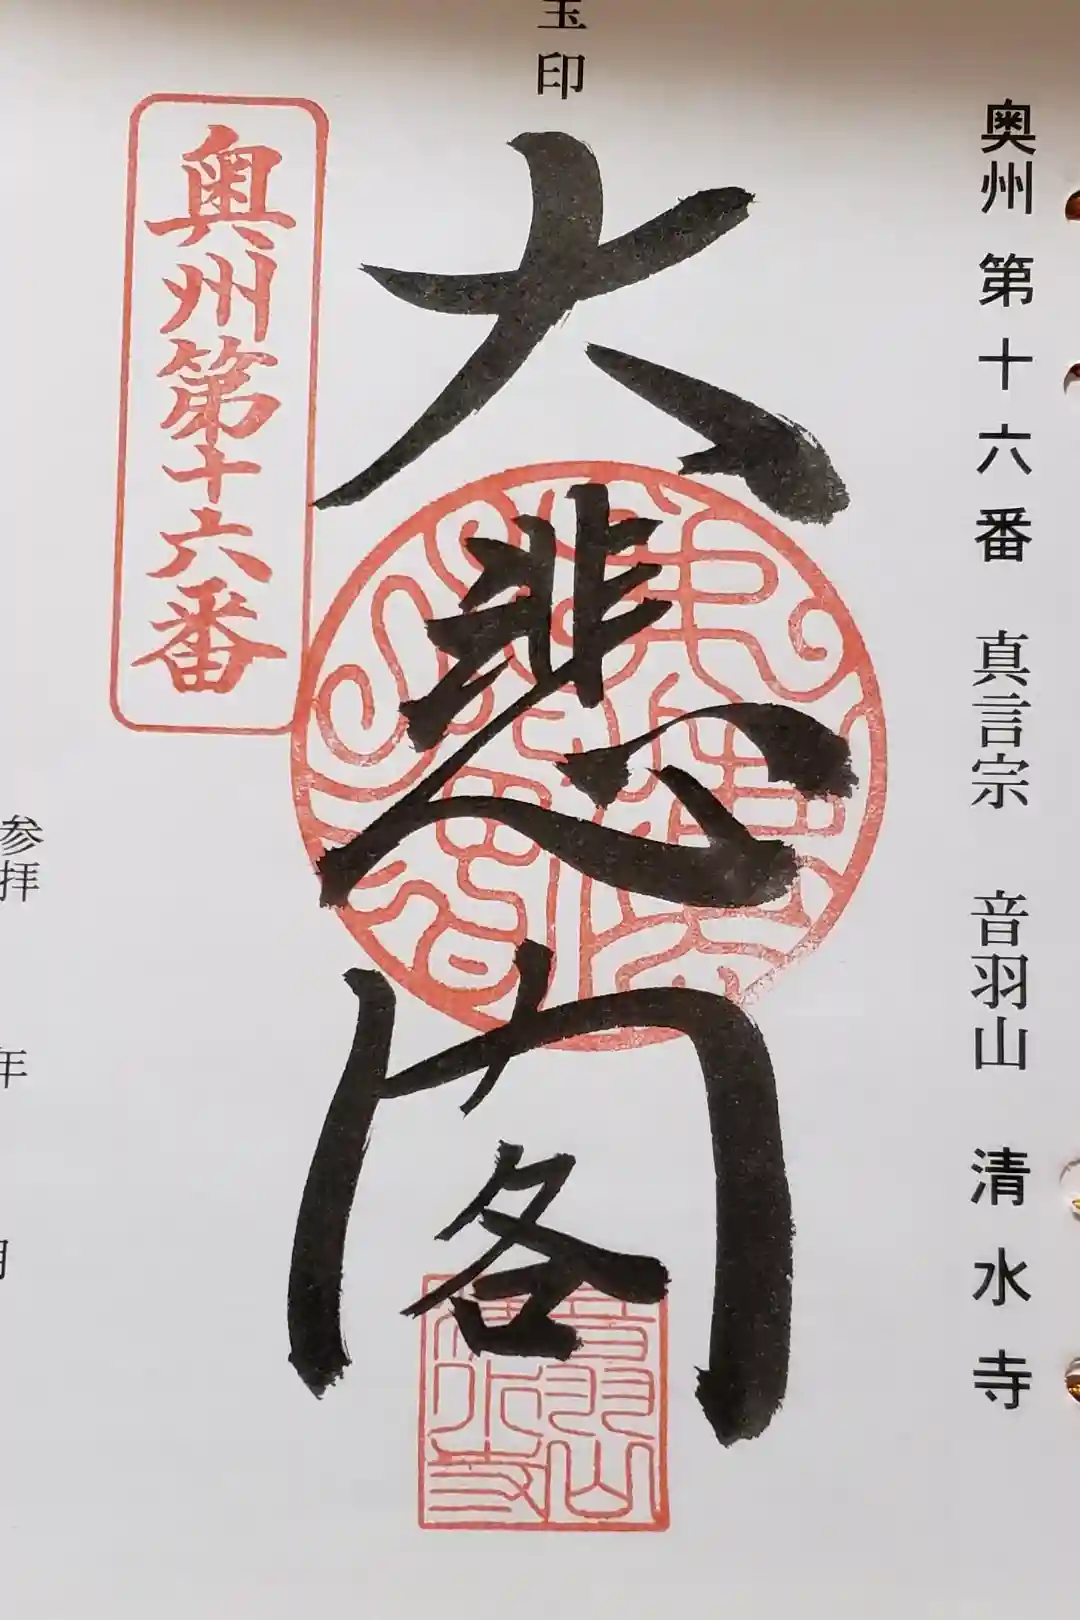 奥州第十六番 真言宗 音羽山 清水寺
印
大悲閣
奥州第十六番
音羽山
清水寺
参拝 年 月